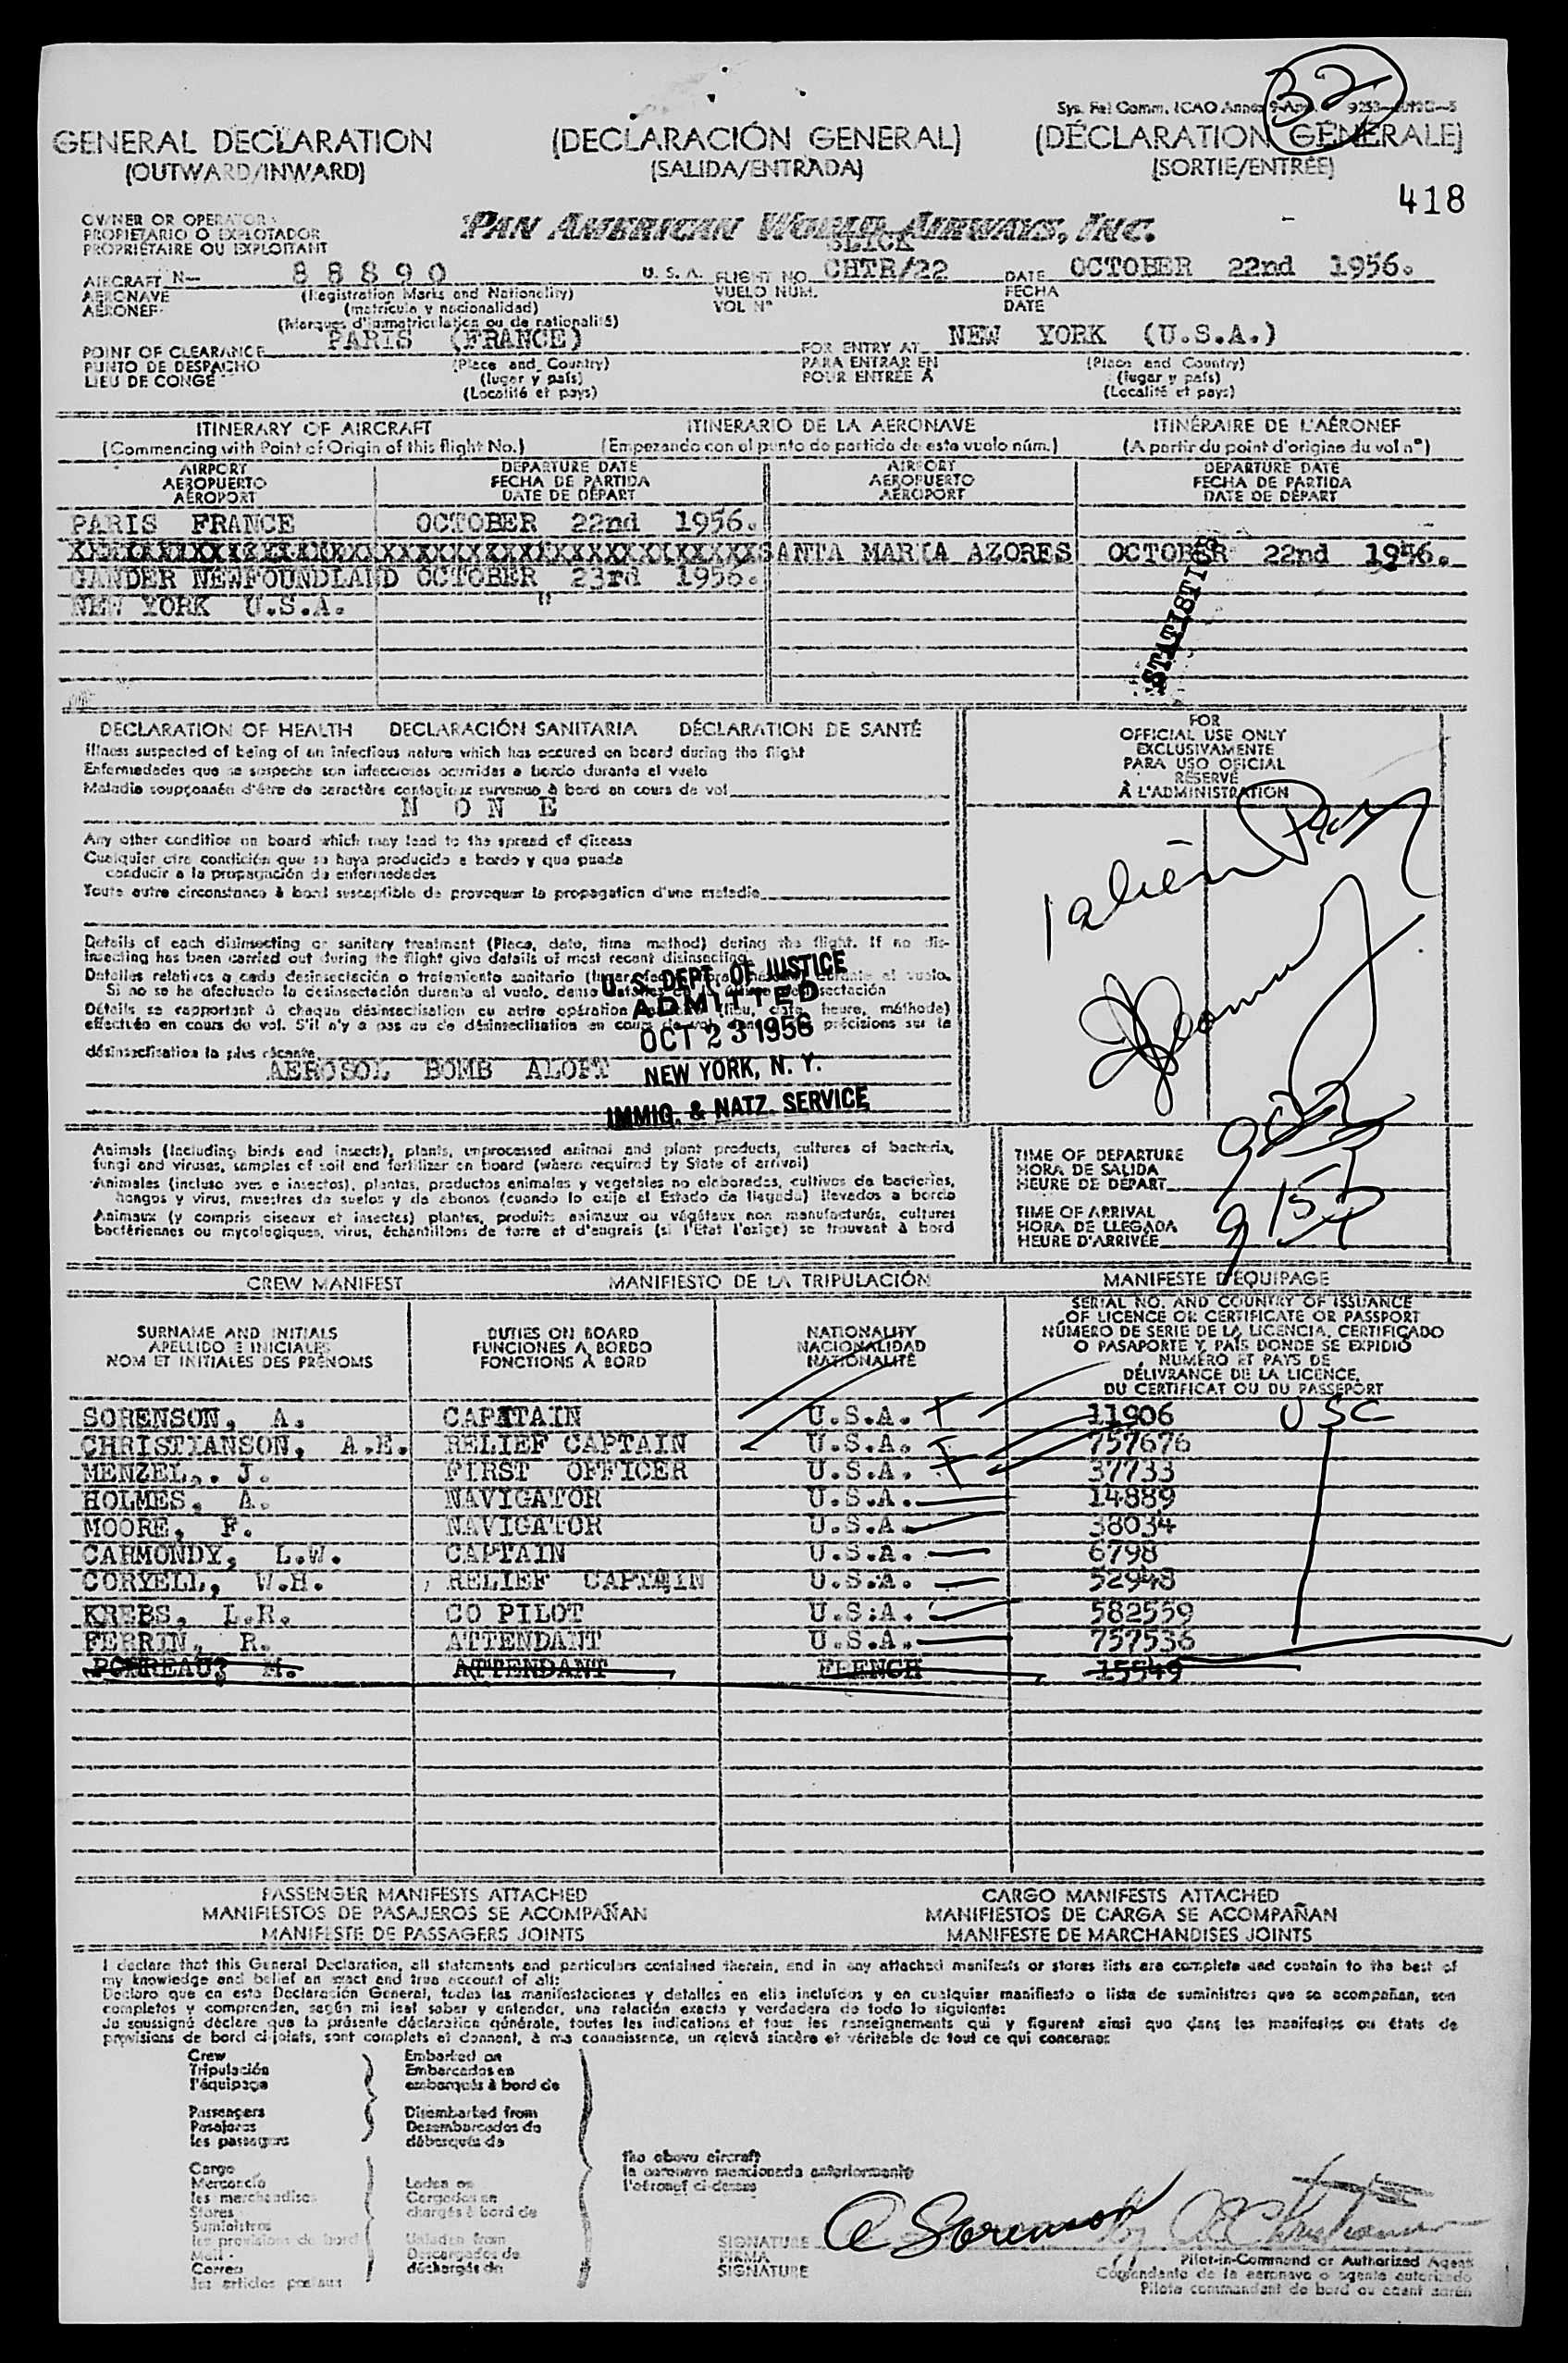 32
Sys. Rel Comm. ICAO Annex 9-App.
GENERAL DECLARATION (DECLARACIÓN GENERAL) (DÉCLARATION GÉNÉRALE)
(OUTWARD/INWARD) (SALIDA/ENTRADA) (SORTIE/ENTRÉE)
418
OWNER OR OPERATOR
PROPIETARIO O EXPLOTADOR
PROPRIÉTAIRE OU EXPLOITANT
PAN AMERICAN WORLD AIRWAYS, INC.
SLICK
AIRCRAFT N— 88890 U.S.A. FLIGHT NO. CHTR/22 DATE OCTOBER 22nd 1956.
AERONAVE (Registration Marks and Nationality) VUELO NÚM. FECHA
AÉRONEF (matrícula y nacionalidad) VOL N° DATE
(Marques d'immatriculation ou de nationalité)
POINT OF CLEARANCE PARIS (FRANCE) FOR ENTRY AT NEW YORK (U.S.A.)
PUNTO DE DESPACHO (Place and Country) PARA ENTRAR EN (Place and Country)
LIEU DE CONGÉ (lugar y país) POUR ENTRÉE À (lugar y país)
(Localité et pays) (Localité et pays)
ITINERARY OF AIRCRAFT ITINERARIO DE LA AERONAVE ITINÉRAIRE DE L'AÉRONEF
(Commencing with Point of Origin of this flight No.) (Empezando con el punto de partida de este vuelo núm.) (A partir du point d'origine du vol n°)
AIRPORT DEPARTURE DATE AIRPORT DEPARTURE DATE
AEROPUERTO FECHA DE PARTIDA AEROPUERTO FECHA DE PARTIDA
AÉROPORT DATE DE DÉPART AÉROPORT DATE DE DÉPART
PARIS FRANCE OCTOBER 22nd 1956.
SANTA MARIA AZORES OCTOBER 22nd 1956.
GANDER NEWFOUNDLAND OCTOBER 23rd 1956.
NEW YORK U.S.A. "
STATISTICS
DECLARATION OF HEALTH DECLARACIÓN SANITARIA DÉCLARATION DE SANTÉ
Illness suspected of being of an infectious nature which has occured on board during the flight
Enfermedades que se sospeche son infecciosas ocurridas a bordo durante el vuelo
Maladie soupçonnée d'être de caractère contagieux survenue à bord en cours de vol
N O N E
Any other condition on board which may lead to the spread of disease
Cualquier otra condición que se haya producido a bordo y que pueda
conducir a la propagación de enfermedades
Toute autre circonstance à bord susceptible de provoquer la propagation d'une maladie
Details of each disinsecting or sanitary treatment (Place, date, time method) during the flight. If no dis-
insecting has been carried out during the flight give details of most recent disinsecting
Detalles relativos a cada desinsectación o tratamiento sanitario durante el vuelo.
Si no se ha efectuado la desinsectación durante el vuelo, dense
Détails se rapportant à chaque désinsectisation ou autre opération (lieu, date, heure, méthode)
effectuée en cours de vol. S'il n'y a pas eu de désinsectisation en cours de vol précisions sur la
désinsectisation la plus récente
AEROSOL BOMB ALOFT
U. S. DEPT. OF JUSTICE
ADMITTED
OCT 23 1956
NEW YORK, N. Y.
IMMIG. & NATZ. SERVICE
FOR
OFFICIAL USE ONLY
EXCLUSIVAMENTE
PARA USO OFICIAL
RÉSERVÉ
À L'ADMINISTRATION
1 alien
Animals (including birds and insects), plants, unprocessed animal and plant products, cultures of bacteria,
fungi and viruses, samples of soil and fertilizer on board (where required by State of arrival)
Animales (incluso aves e insectos), plantas, productos animales y vegetales no elaborados, cultivos de bacterias,
hongos y virus, muestras de suelos y de abonos (cuando lo exija el Estado de llegada) llevados a bordo
Animaux (y compris oiseaux et insectes) plantes, produits animaux ou végétaux non manufacturés, cultures
bactériennes ou mycologiques, virus, échantillons de terre et d'engrais (si l'État l'exige) se trouvant à bord
TIME OF DEPARTURE
HORA DE SALIDA
HEURE DE DÉPART
TIME OF ARRIVAL
HORA DE LLEGADA
HEURE D'ARRIVÉE
CREW MANIFEST MANIFIESTO DE LA TRIPULACIÓN MANIFESTE D'ÉQUIPAGE
SURNAME AND INITIALS
APELLIDO E INICIALES
NOM ET INITIALES DES PRÉNOMS
DUTIES ON BOARD
FUNCIONES A BORDO
FONCTIONS À BORD
NATIONALITY
NACIONALIDAD
NATIONALITÉ
SERIAL NO. AND COUNTRY OF ISSUANCE
OF LICENCE OR CERTIFICATE OR PASSPORT
NÚMERO DE SERIE DE LA LICENCIA, CERTIFICADO
O PASAPORTE Y PAÍS DONDE SE EXPIDIÓ
NUMÉRO ET PAYS DE
DÉLIVRANCE DE LA LICENCE,
DU CERTIFICAT OU DU PASSEPORT
SORENSON, A. CAPTAIN U.S.A. 11906 USC
CHRISTIANSON, A.E. RELIEF CAPTAIN U.S.A. 757676
MENZEL, J. FIRST OFFICER U.S.A. 37733
HOLMES, A. NAVIGATOR U.S.A. 14889
MOORE, F. NAVIGATOR U.S.A. 38034
CARMONDY, L.W. CAPTAIN U.S.A. 6798
CORYELL, W.H. RELIEF CAPTAIN U.S.A. 52948
KREBS, L.R. CO PILOT U.S.A. 582559
FERRIN, R. ATTENDANT U.S.A. 757536
M. ATTENDANT FRENCH 15549
PASSENGER MANIFESTS ATTACHED CARGO MANIFESTS ATTACHED
MANIFIESTOS DE PASAJEROS SE ACOMPAÑAN MANIFIESTOS DE CARGA SE ACOMPAÑAN
MANIFESTE DE PASSAGERS JOINTS MANIFESTE DE MARCHANDISES JOINTS
I declare that this General Declaration, all statements and particulars contained therein, and in any attached manifests or stores lists are complete and contain to the best of
my knowledge and belief an exact and true account of all:
Declaro que en esta Declaración General, todas las manifestaciones y detalles en ella incluídos y en cualquier manifiesto o lista de suministros que se acompañan, son
completos y comprenden, según mi leal saber y entender, una relación exacta y verdadera de todo lo siguiente:
Je soussigné déclare que la présente déclaration générale, toutes les indications et tous les renseignements qui y figurent ainsi que dans les manifestes ou états de
provisions de bord ci-joints, sont complets et donnent, à ma connaissance, un relevé sincère et véritable de tout ce qui concerne:
Crew Embarked on
Tripulación Embarcados en
l'équipage embarqués à bord de
Passengers Disembarked from
Pasajeros Desembarcados de
les passagers débarqués de
the above aircraft
la aeronave mencionada anteriormente
l'aéronef ci-dessus
Cargo
Mercancía Laden on
les marchandises Cargados en
Stores chargés à bord de
Suministros
les provisions de bord Unladen from
Mail Descargados de
Correo déchargés de
les articles postaux
SIGNATURE A Sorenson by AE Christianson
FIRMA
SIGNATURE
Pilot-in-Command or Authorized Agent
Comandante de la aeronave o agente autorizado
Pilote commandant de bord ou agent agréé